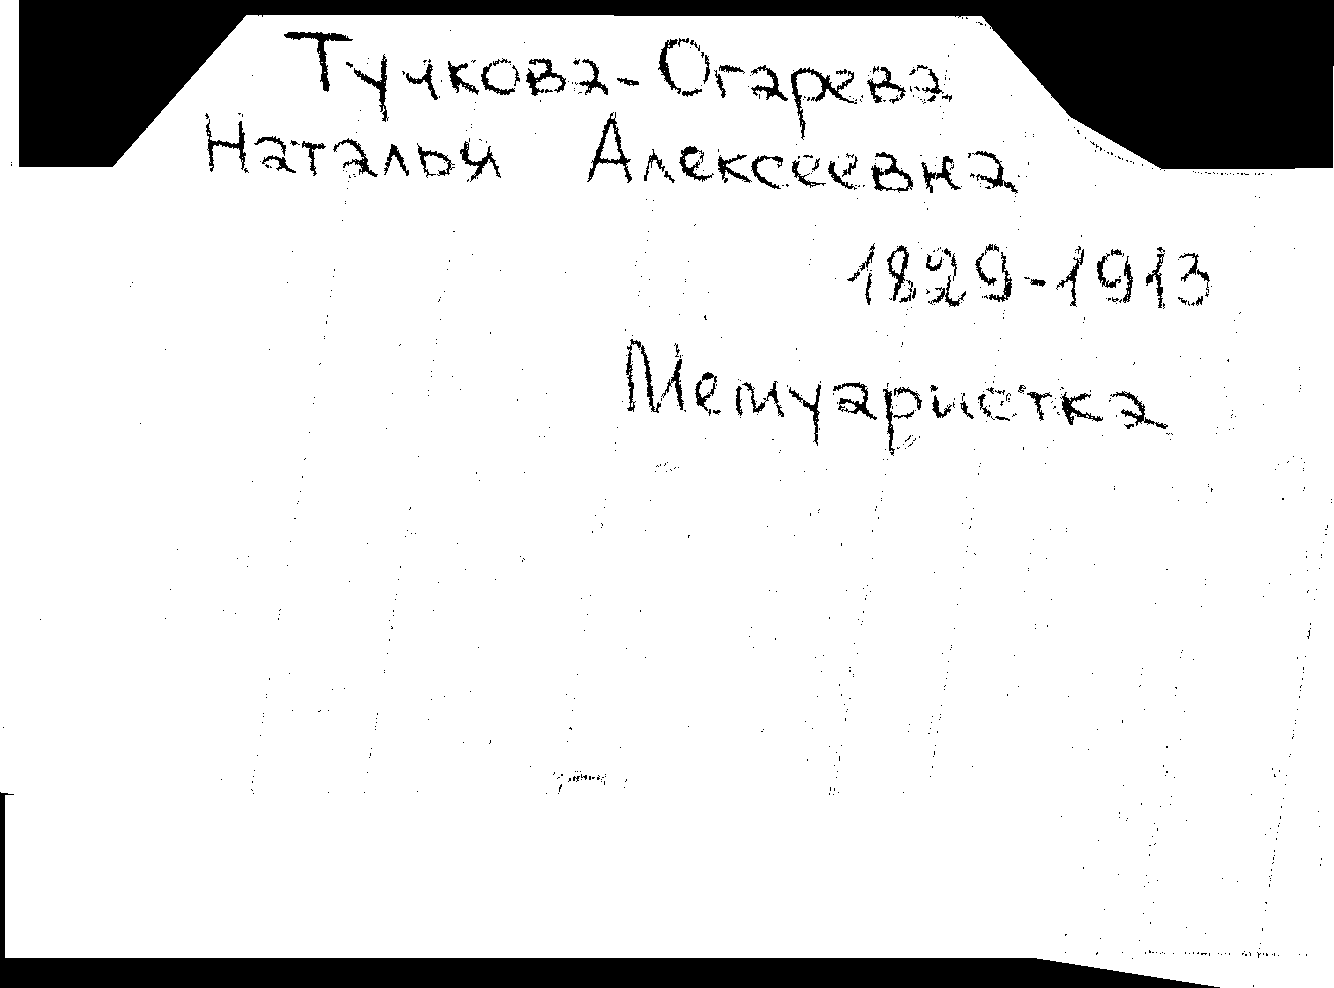 Тучкова-Огарева
Наталья Алексеевна
1829-1913
Мемуаристка